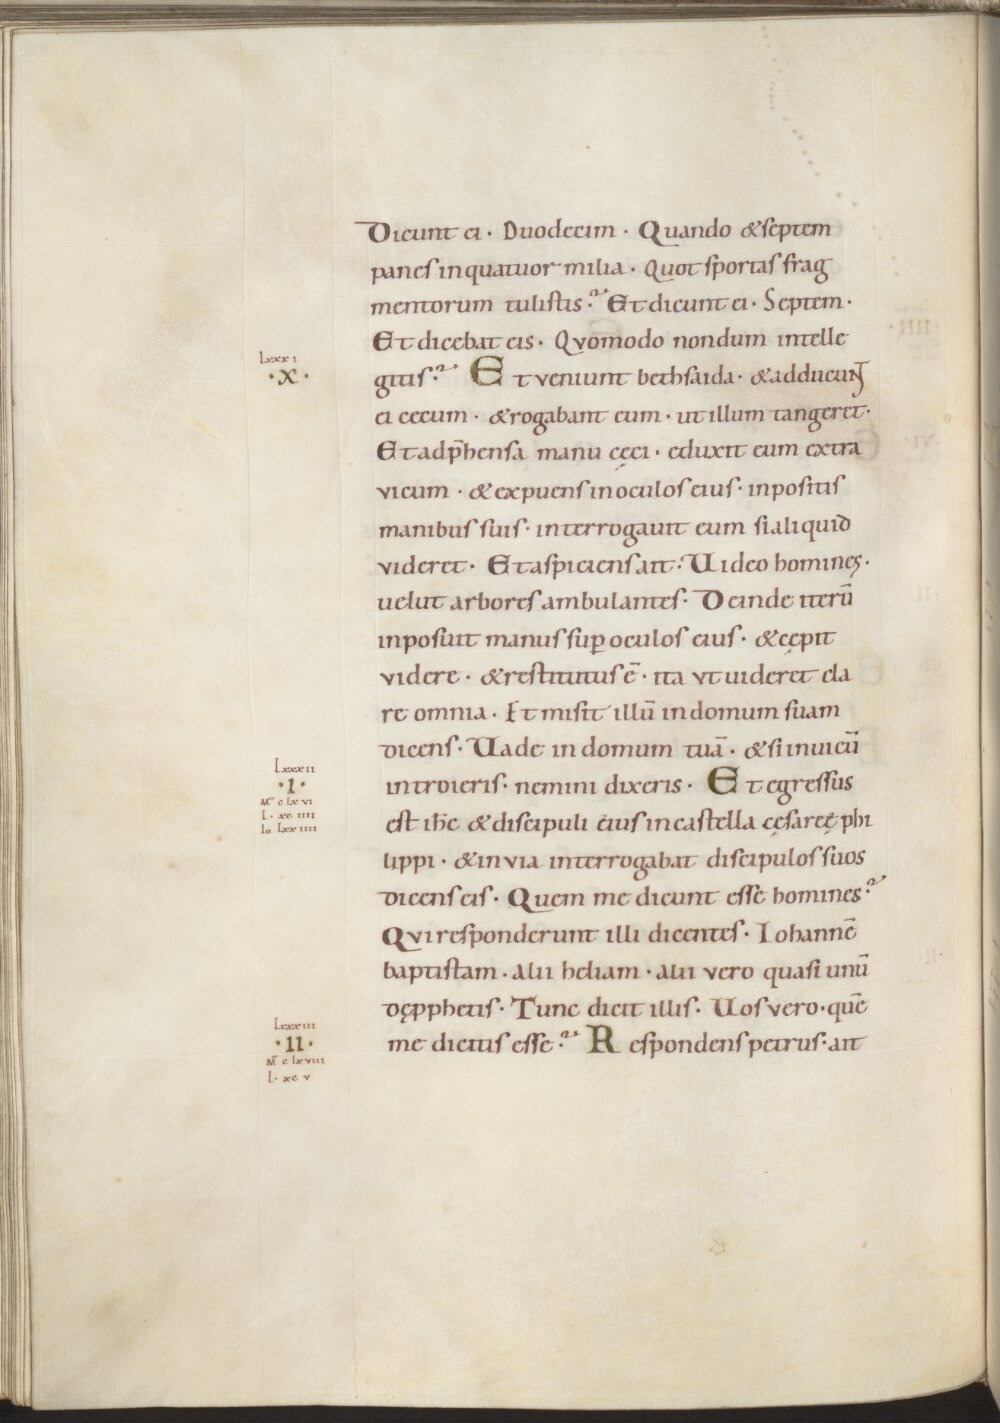 Dicunt ei · Duodecim · Quando & septem
panes in quatuor milia · Quot sportas frag
mentorum tulistis · Et dicunt ei · Septem ·
Et dicebat eis · Qvomodo nondum intelle
lxxxi
· x ·
gitis · Et veniunt bethsaida · & adducunt
ei cecum · & rogabant eum · ut illum tangeret ·
Et adp̄hensa manu cęci · eduxit eum extra
vicum · & expuens in oculos eius · inpositis
manibus suis · interrogauit eum si aliquid
videret · Et aspiciens ait : Uideo homines ·
uelut arbores ambulantes · Deinde iterū
inposuit manus sup oculos eius · & cępit
videre · & restitutus ē · ita vt uideret cla
re omnia · Et misit illū in domum suam
dicens · Uade in domum tuā · & si in uicū
lxxxii
· i ·
M̄ c lxvi
L · xciiii
Io lxxiiii
introieris · nemini dixeris · Et egressus
est ih̄c & discipuli eius in castella cęsareę phi
lippi · & in via interrogabat discipulos suos
dicens eis · Quem me dicunt esse homines ·
Qvi responderunt illi dicentes · Iohannē
baptistam · alii heliam · alii vero quasi unū
dę pphetis · Tunc dicit illis · Uos vero · quē
lxxxiii
· ii ·
M̄ c lxviii
L · xcv
me dicitis esse · Respondens petrus · ait